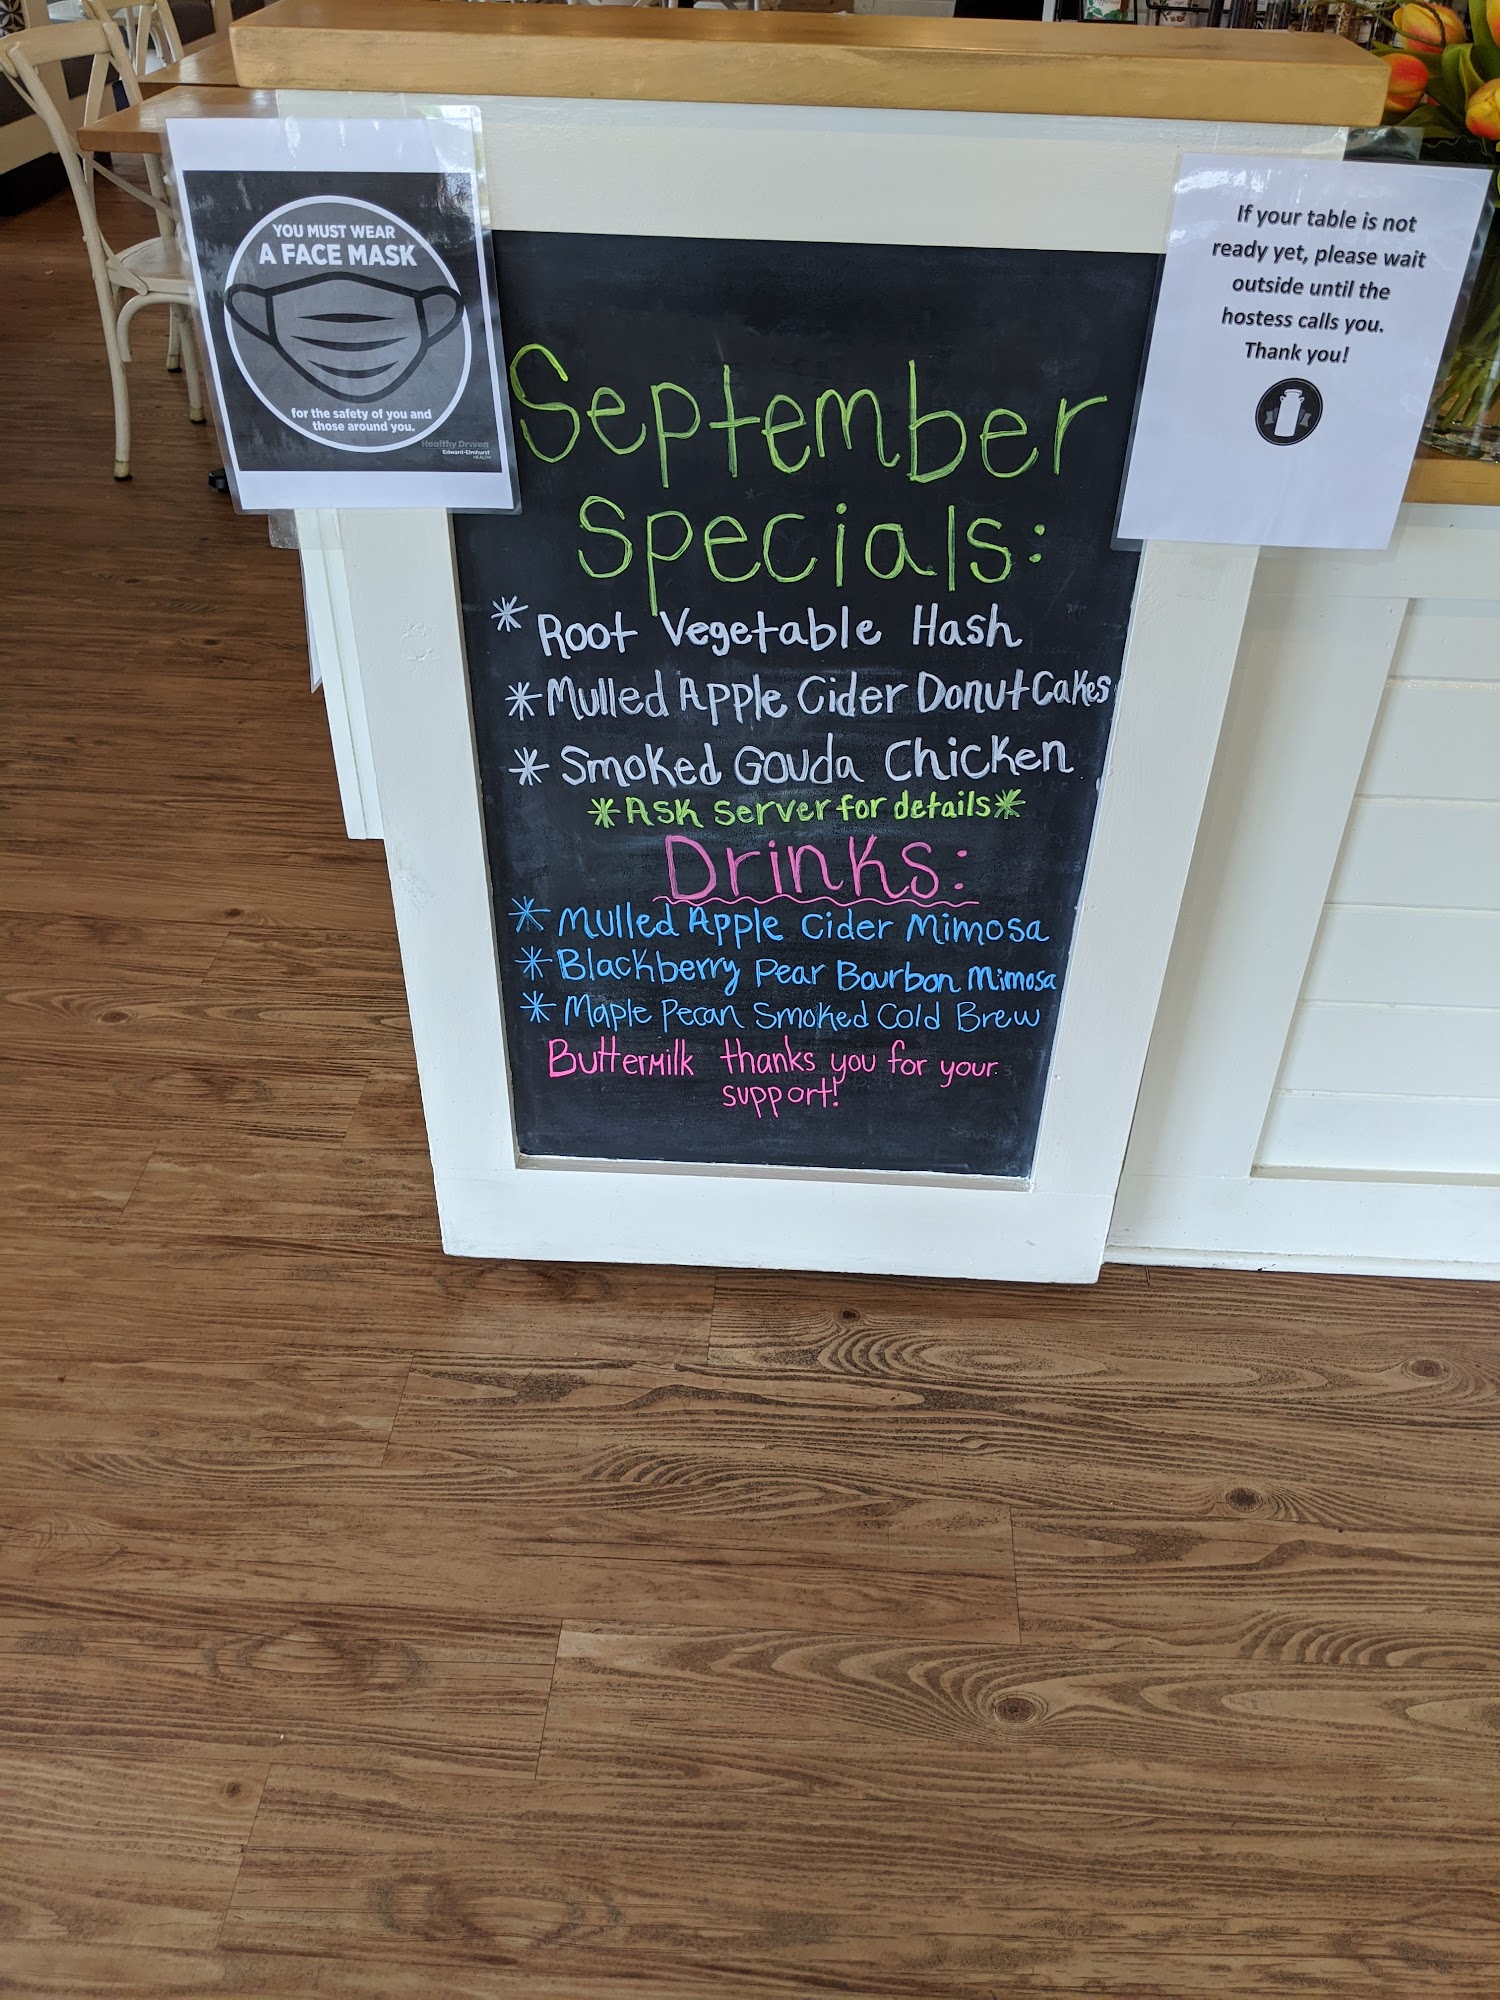 YOU MUST WEAR
A FACE MASK
for the safety of you and
those around you.
Healthy Driven
Edward-Elmhurst
HEALTH
If your table is not
ready yet, please wait
outside until the
hostess calls you.
Thank you!
September
Specials:
* Root Vegetable Hash
* Mulled Apple Cider Donut Cakes
* Smoked Gouda Chicken
*Ask server for details*
Drinks:
* Mulled Apple Cider Mimosa
* Blackberry Pear Bourbon Mimosa
* Maple Pecan Smoked Cold Brew
Buttermilk thanks you for your
support!